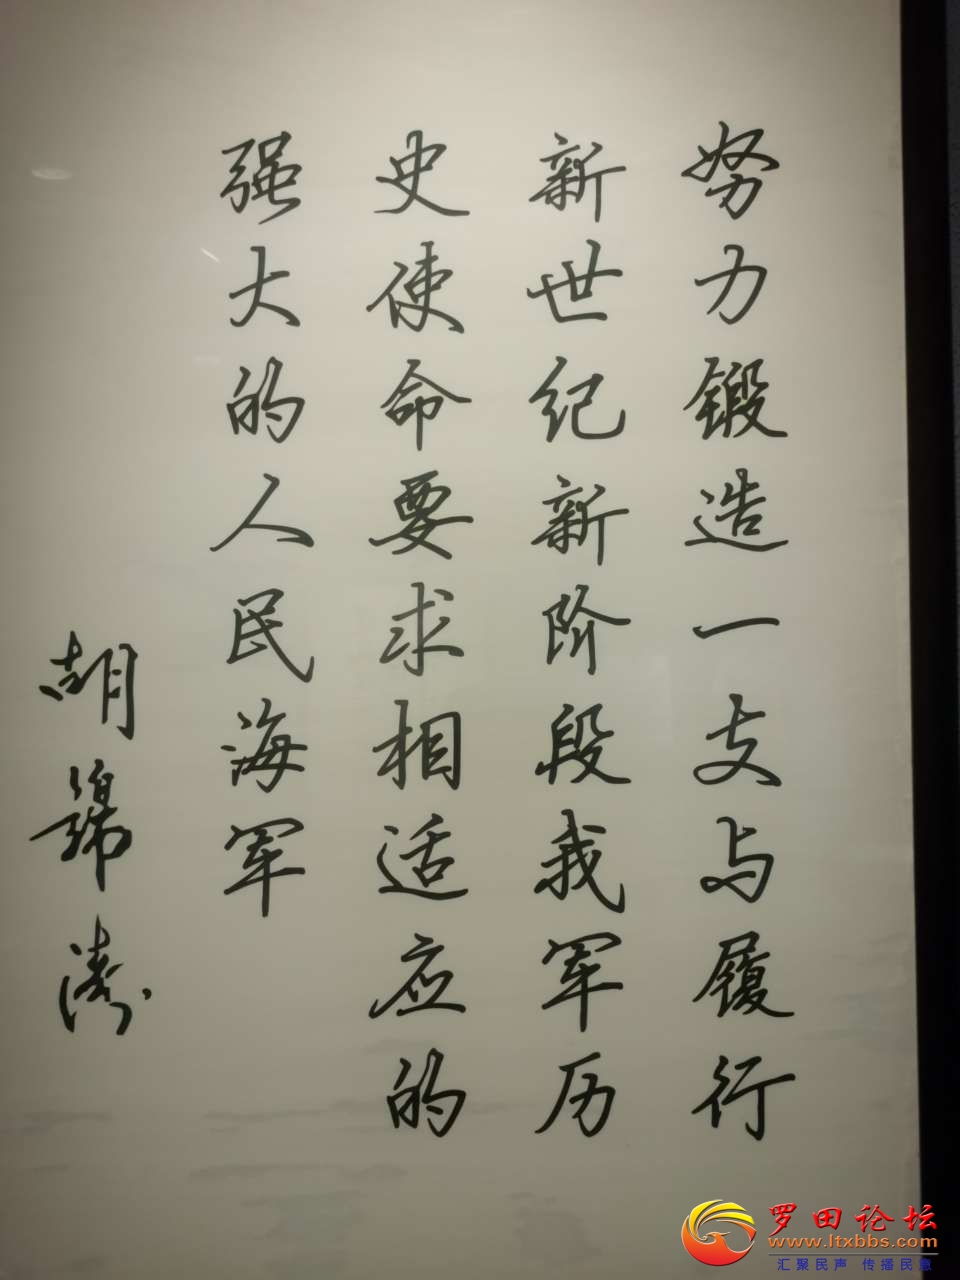 努力锻造一支与履行
新世纪新阶段我军历
史使命要求相适应的
强大的人民海军
胡锦涛
罗田论坛
www.ltxbbs.com
汇聚民声 传播民意